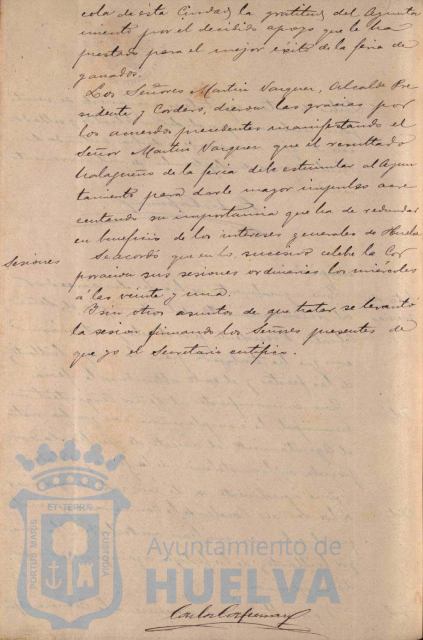 cola de esta Ciudad, la gratitud del Ayunta
miento por el decidido apoyo que le ha
prestado para el mejor éxito de la feria de
ganados.
Los Señores Martin Vazquez, Alcalde Pre
sidente y Cordero, dieron las gracias por
los acuerdos precedentes manifestando el
Señor Martin Vazquez que el resultado
halagueño de la feria debe estimular al Ayun
tamiento para darle mayor impulso acre
centando su importancia que ha de redundar
en beneficio de los intereses generales de Huelva
Sesiones Se acordó que en lo sucesivo celebre la Cor
poracion sus sesiones ordinarias los miercoles
á las veinte y una.
Y sin otros asuntos de que tratar se levantó
la sesion firmando los Señores presentes de
que yo el Secretario certifico.
ET TERRÆ
PORTUS MARIS
CUSTODIA
Ayuntamiento de
HUELVA